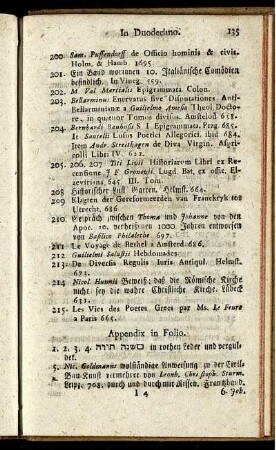 In Duodecimo. 135
200. Sam. Puffendorff de Officio hominis & civis.
Holm. & Hamb. 1695
201. Ein Band worinnen 10. Italiänische Comödien
befindlich. In Vineg. 559.
202. M. Val Martialis Epigrammata Colon.
203. Bellarminus Enervatus sive Disputationes Anti-
Bellarminianæ a Guilielmo Amesio Theol. Docto-
re, in quatuor Tomos divisus. Amstelod 658.
204. Bernhardi Bauhusi S. I. Epigrammata. Prag. 685.
It. Santelli Lusus Poetici Allegorici. ibid 684.
Item Andr. Streithagen de Diva Virgin. Asperi-
collis Libri IV. 632.
205. 206. 207 Titi Livii Historiarum Libri ex Recen-
sione J F Gronovii. Lugd. Bat. ex offic. El-
zevirina 645 III. Tom.
208 Historischer Lust Garten. Helmst. 664.
209 Klagten der Gereformeerden van Franckryk tot
Utrecht. 686
210 Gespräch zwischen Thoma und Johanne von den
Apoc. 20. verheissenen 1000 Jahren entworfen
von Basilio Philaletho. 697.
211 Le Voyage de Bethel a Amsterd. 686.
212 Guilielmi Salustii Hebdomades
213 De Diversis Regulis Juris Antiqui. Helmst.
673.
214 Nicol Hunnii Beweiß; daß die Römische Kirche
nicht sey die wahre Christliche Kirche. Lübeck
631.
215. Les Vies des Poetes Grecs par Ms. le Feure
a Paris 665.
Appendix in Folio.
1. 2. 3. 4. משנה תורה in rothen Leder und vergul-
det.
5. Nic. Goldmanns vollständige Anweisung zu der Civil-
Bau Kunst vermehret von Leonh. Christoph. Sturm.
Leipz. 708. durch und durch mit Rissen. Frantzband.
I 4 6. Joh.